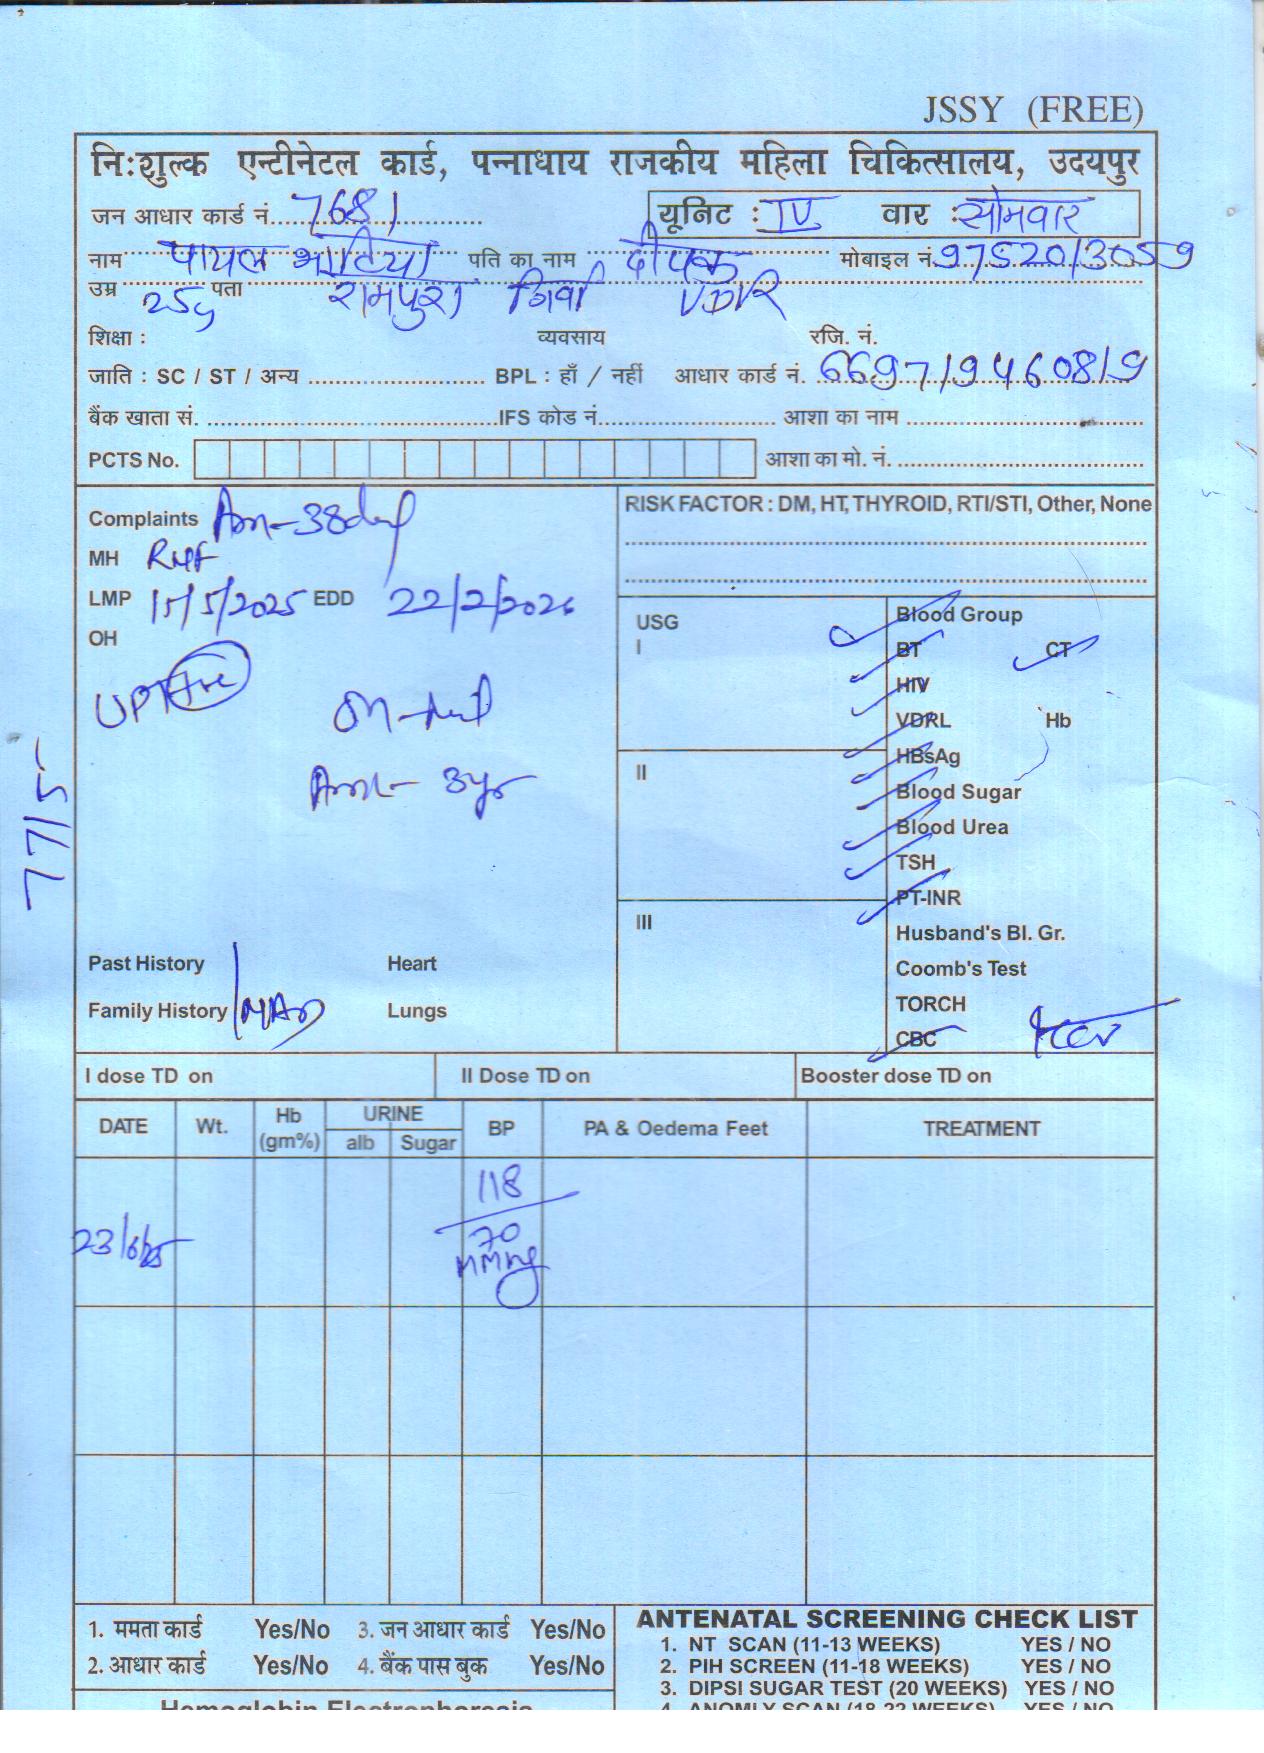 JSSY (FREE)
निःशुल्क एन्टीनेटल कार्ड, पन्नाधाय राजकीय महिला चिकित्सालय, उदयपुर
जन आधार कार्ड नं. 7681 यूनिट : IV वार : सोमवार
नाम पायल भाटिया पति का नाम दीपक मोबाइल नं. 9752013059
उम्र 25y पता रामपुरा गिर्वा UDR
शिक्षा : व्यवसाय रजि. नं.
जाति : SC / ST / अन्य BPL : हाँ / नहीं आधार कार्ड नं. 669719460819
बैंक खाता सं. IFS कोड नं. आशा का नाम
PCTS No. आशा का मो. नं.
Complaints Am - 38
MH RMF
LMP 15/5/2025 EDD 22/2/2026
OH
UPT +ve
3yr
77/5
Past History Heart
Family History NAD Lungs
RISK FACTOR : DM, HT, THYROID, RTI/STI, Other, None
USG
I
II
III
Blood Group
BT CT
HIV
VDRL Hb
HBsAg
Blood Sugar
Blood Urea
TSH
PT-INR
Husband's Bl. Gr.
Coomb's Test
TORCH
CBC HCV
I dose TD on II Dose TD on Booster dose TD on
DATE Wt. Hb (gm%) URINE alb Sugar BP PA & Oedema Feet TREATMENT
23/6/25 118/70 mmHg
1. ममता कार्ड Yes/No 3. जन आधार कार्ड Yes/No
2. आधार कार्ड Yes/No 4. बैंक पास बुक Yes/No
Hemoglobin Electrophoresis
ANTENATAL SCREENING CHECK LIST
1. NT SCAN (11-13 WEEKS) YES / NO
2. PIH SCREEN (11-18 WEEKS) YES / NO
3. DIPSI SUGAR TEST (20 WEEKS) YES / NO
4. ANOMLY SCAN (18-22 WEEKS) YES / NO